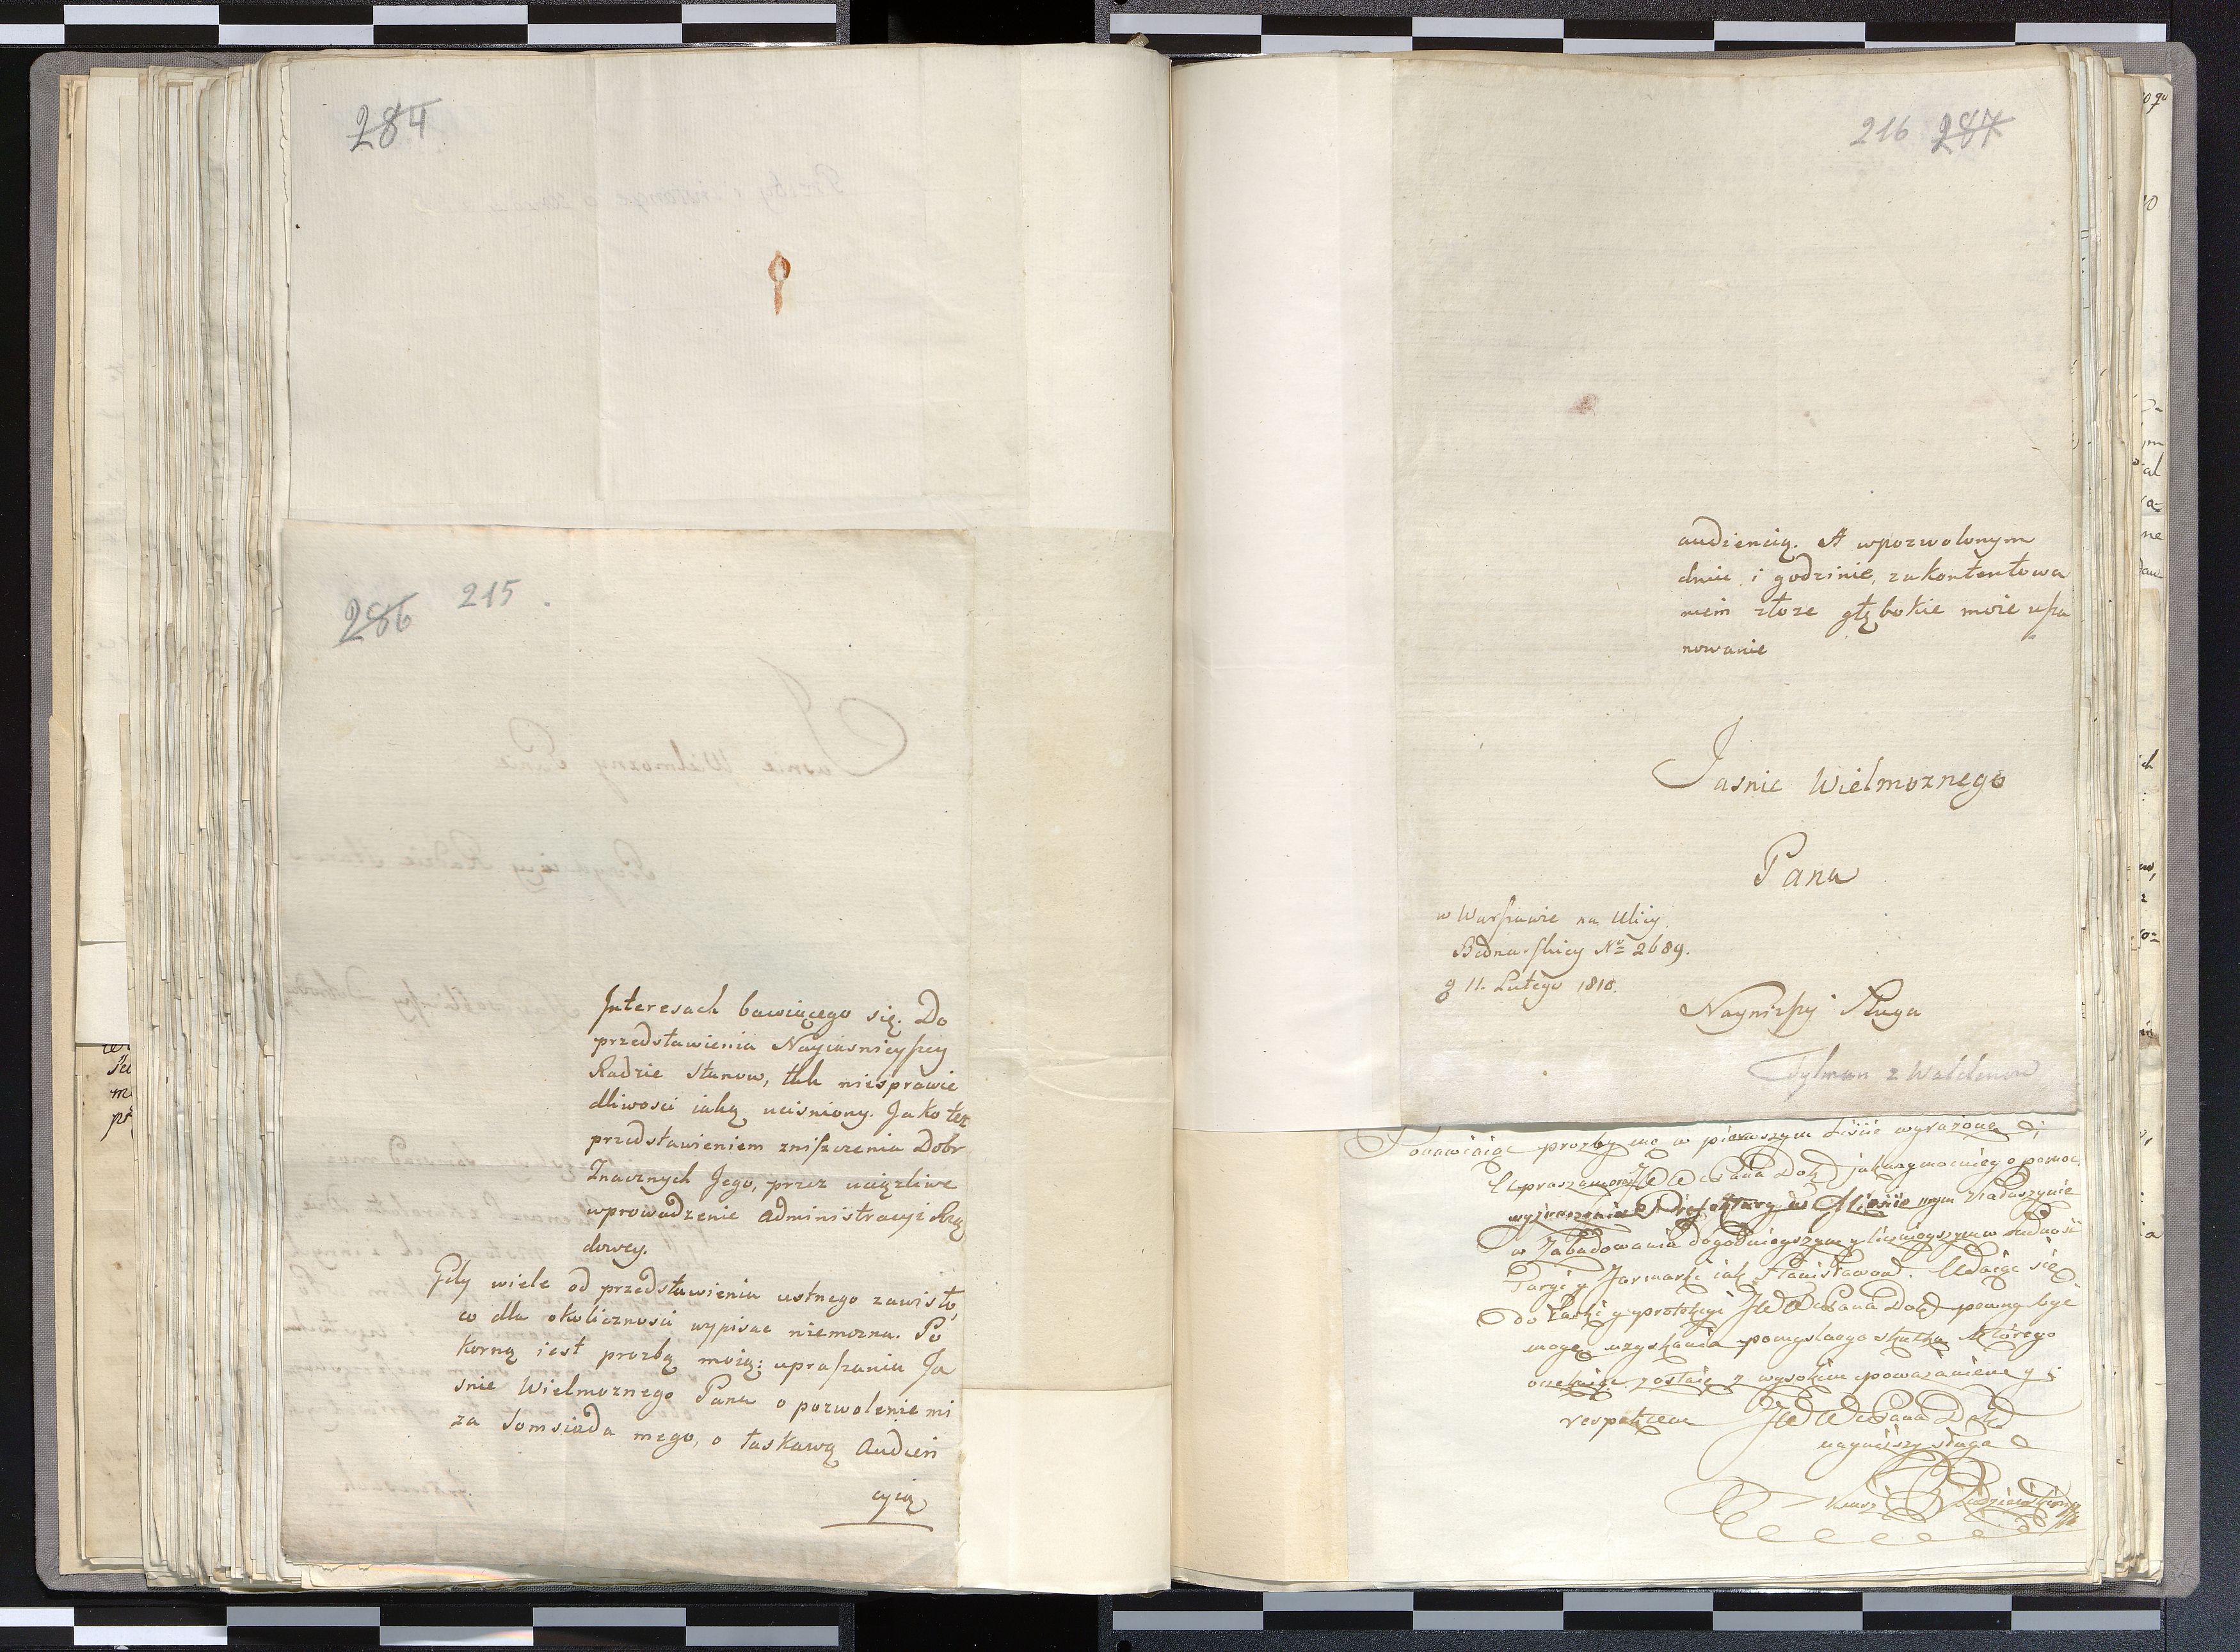 284
286 215.
Interesach bawiącego się. Do
przedstawienia Nayiasnieyszey
Radzie Stanow, tak niesprawie
dliwosci iaką ucisniony. Jako też
przedstawieniem zniszczenia Dobr
Znacznych Jego, przez uciążliwe
wprowadzenie Administracyi Rzą
dowey.
Gdy wiele od przedstawienia ustnego zawisło,
co dla okoliczności wypisac niemozna. Po
korną iest prozbą moią: upraszania Ja
snie Wielmoznego Pana o pozwolenie mi
za Somsiada mego, o łaskawą Audien
cyią
216 287
audiencią. A wpozwolonym
dniu i godzinie, zukontentowa
niem złoze głębokie moie usza
nowanie
Jasnie Wielmoznego
Pana
w Warszawie na Ulicy
Bednarskiey No 2689.
11. Lutego 1810.
Nayniższy Sługa
Tylman z
Ponawiaiąc prozby me w pierwszym Liście wyrażone
Upraszam Pana jaknaymocniey o pomoc
Miescie mym Radoszycie
w Zabudowania dogodnieyszym y licznieyszym w Ludność
Targi y Jarmarki iak Stanisławow. Udaiąc się
do Łaski y protekcyi Pana pewny być
mogę uzyskania pomyslnego skutku którego
oczekuiąc zostaię z wysokim poważaniem y
respektem Pana
nayniższy sługa